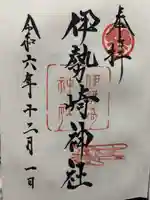 奉拝
伊勢崎神社
令和六年十二月一日